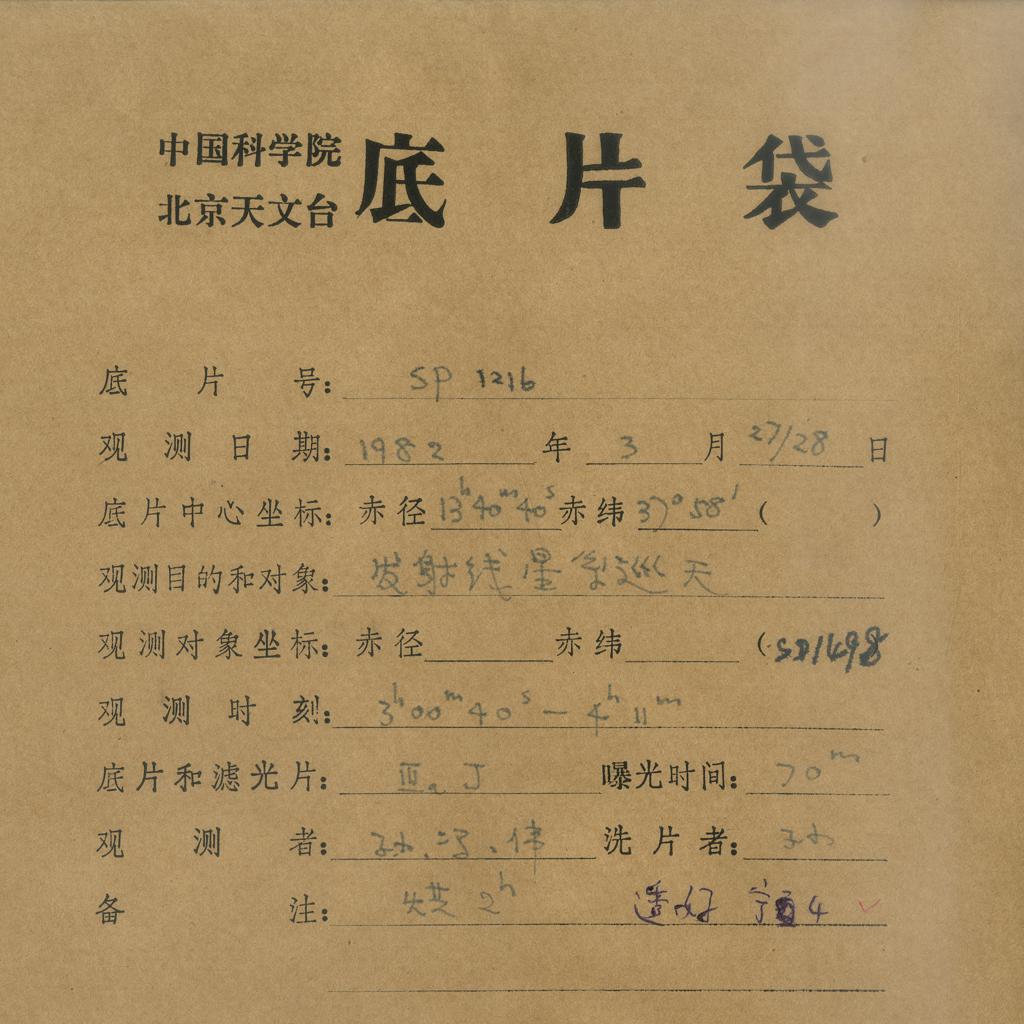 中国科学院
北京天文台
底片袋
底片号: SP 1216
观测日期: 1982 年 3 月 27/28 日
底片中心坐标: 赤径 13h40m40s 赤纬 37°58′ ( )
观测目的和对象: 发射线星系巡天
观测对象坐标: 赤径 赤纬 (SP1498
观测时刻: 3h00m40s — 4h11m
底片和滤光片: Ⅲa J 曝光时间: 70m
观测者: 孙、冯、伟 洗片者: 孙
备注: 烘2h 4